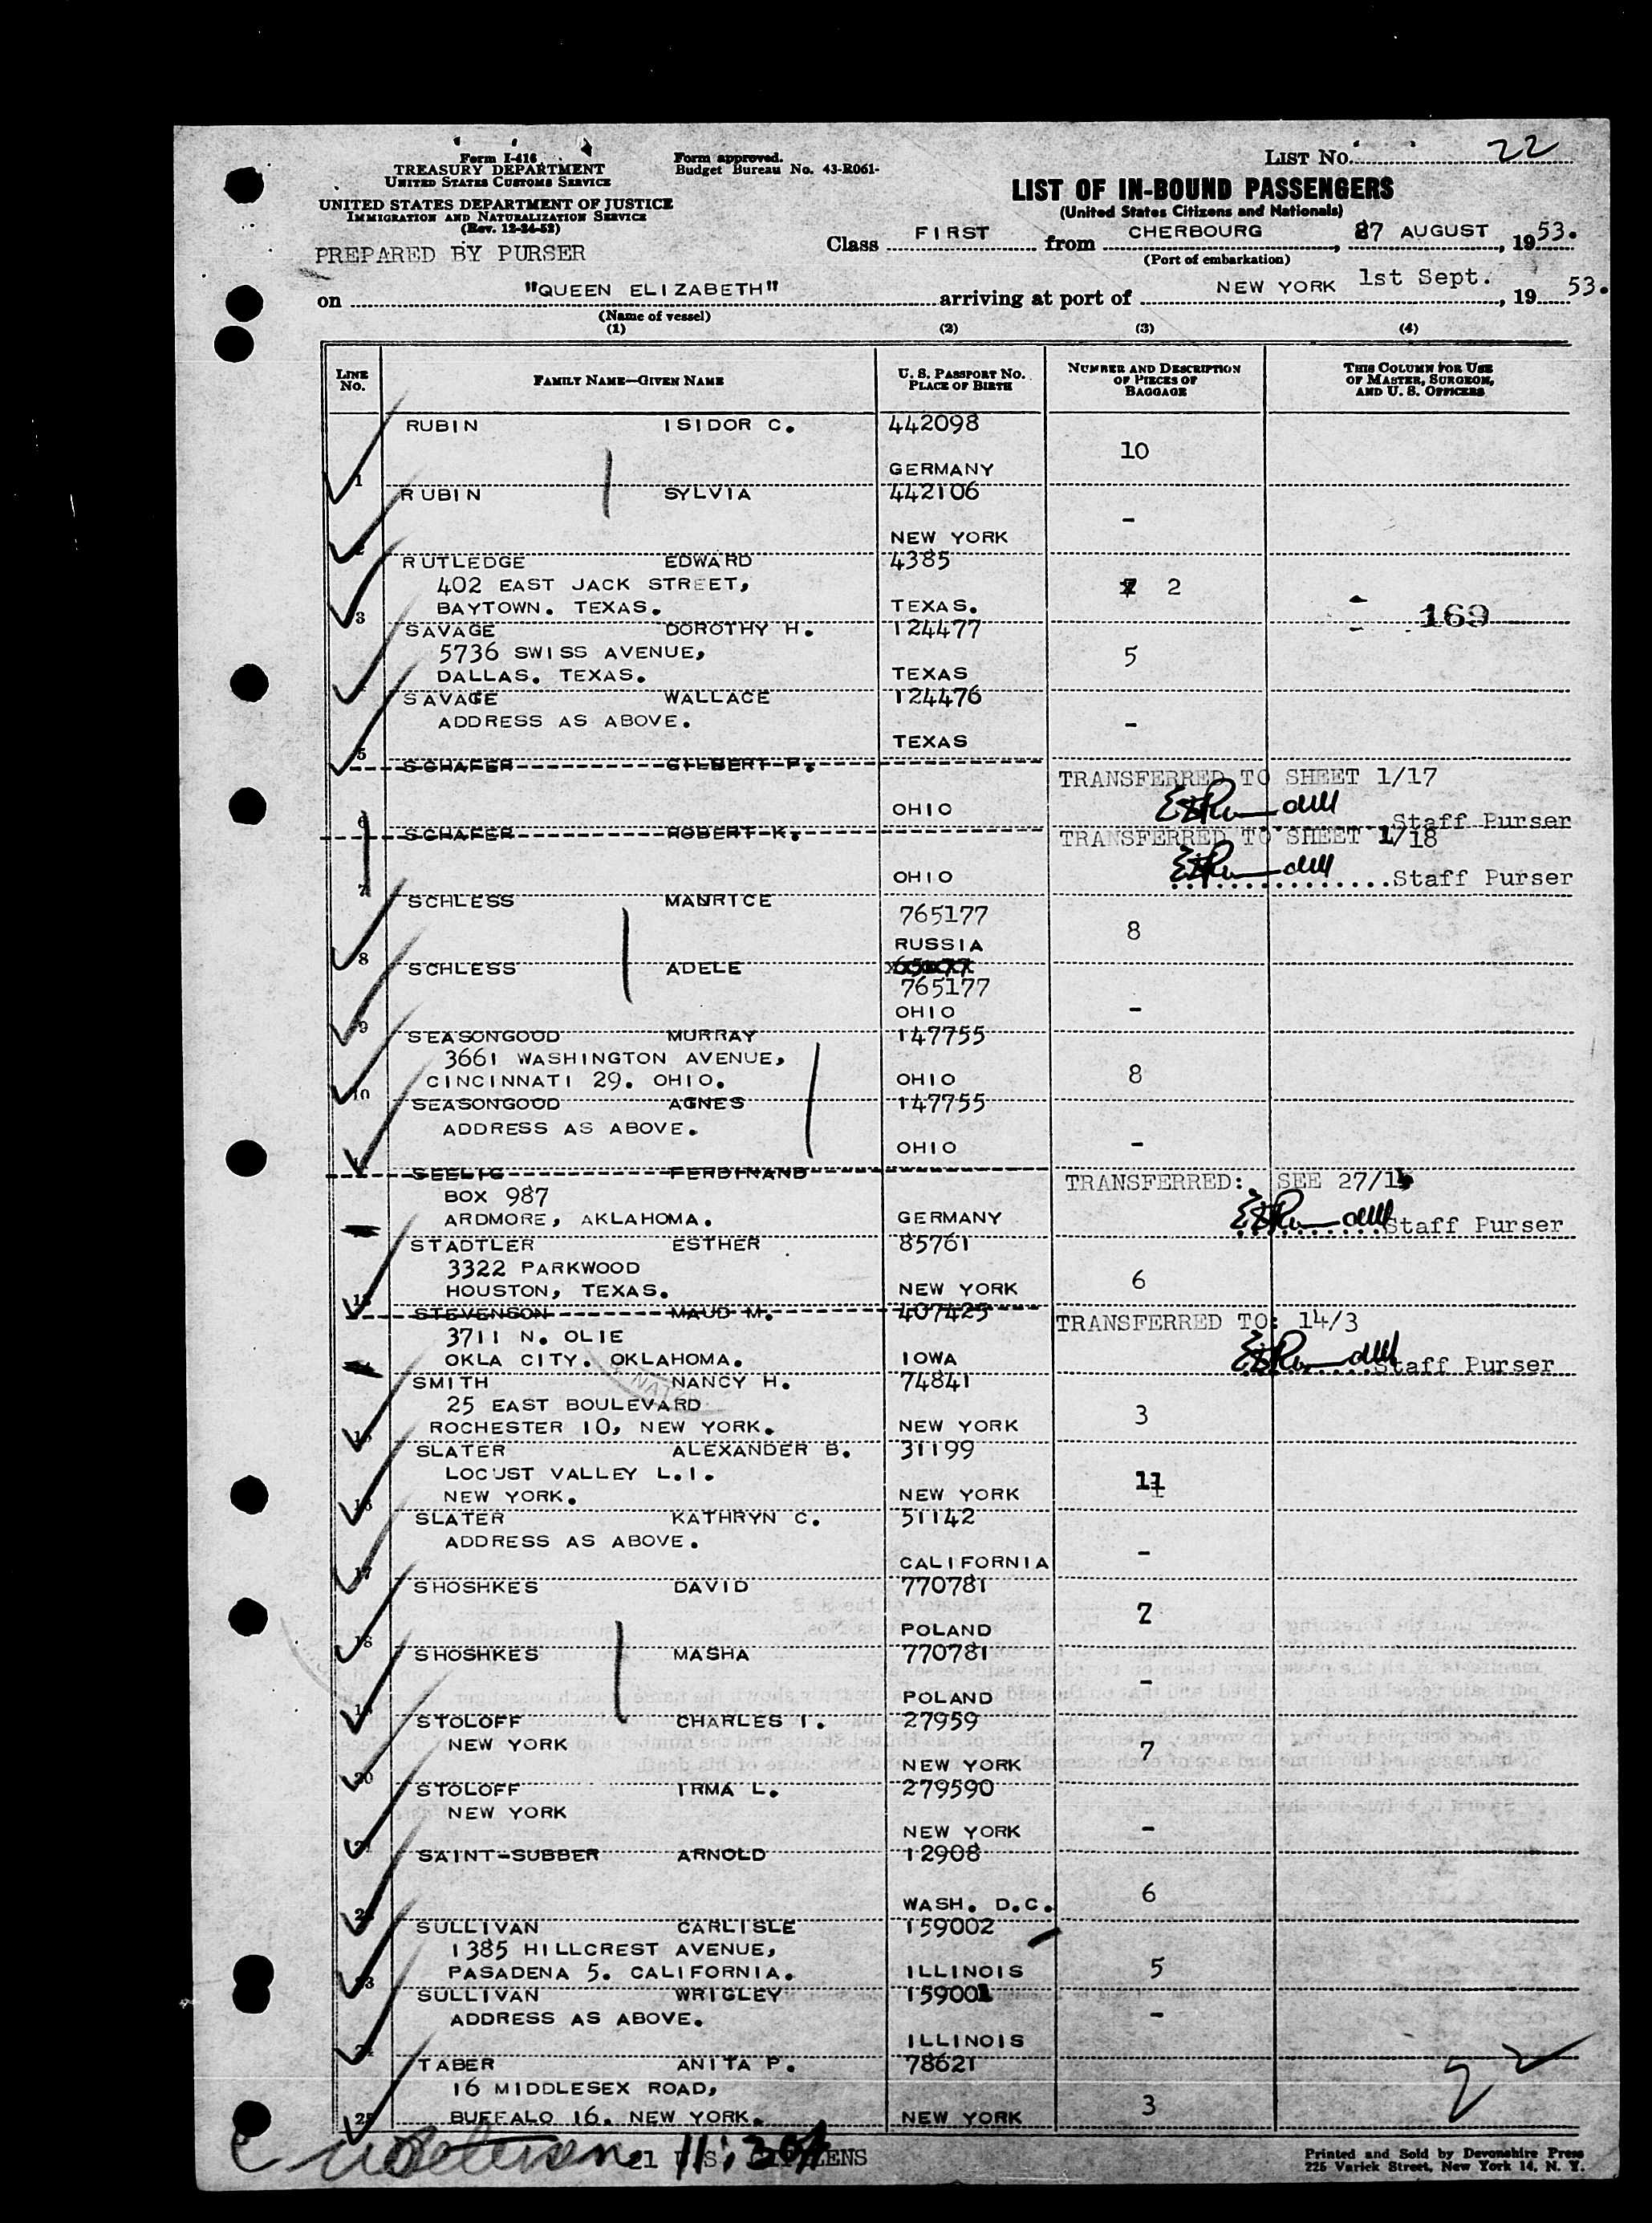 Form I-416
TREASURY DEPARTMENT
UNITED STATES CUSTOMS SERVICE
UNITED STATES DEPARTMENT OF JUSTICE
IMMIGRATION AND NATURALIZATION SERVICE
(Rev. 12-24-52)
PREPARED BY PURSER
Form approved.
Budget Bureau No. 43-R061-
LIST NO. 22
LIST OF IN-BOUND PASSENGERS
(United States Citizens and Nationals)
Class FIRST from CHERBOURG, 27 AUGUST, 1953.
(Port of embarkation)
on "QUEEN ELIZABETH" arriving at port of NEW YORK 1st Sept., 1953.
(Name of vessel)
(1) (2) (3) (4)
LINE NO. FAMILY NAME—GIVEN NAME U. S. PASSPORT NO. PLACE OF BIRTH NUMBER AND DESCRIPTION OF PIECES OF BAGGAGE THIS COLUMN FOR USE OF MASTER, SURGEON, AND U. S. OFFICERS
RUBIN ISIDOR C. 442098
10
1 GERMANY
RUBIN SYLVIA 442106
-
2 NEW YORK
RUTLEDGE EDWARD 4385
402 EAST JACK STREET, 2
3 BAYTOWN. TEXAS. TEXAS. 169
SAVAGE DOROTHY H. 124477
5736 SWISS AVENUE, 5
DALLAS. TEXAS. TEXAS
SAVAGE WALLACE 124476
ADDRESS AS ABOVE. -
5 TEXAS
SCHAFER GILBERT P.
TRANSFERRED TO SHEET 1/17
6 OHIO
Staff Purser
SCHAFER ROBERT K.
TRANSFERRED TO SHEET 1/18
7 OHIO Staff Purser
SCHLESS MAURICE
765177 8
8 RUSSIA
SCHLESS ADELE
765177
9 OHIO -
SEASONGOOD MURRAY 147755
3661 WASHINGTON AVENUE,
10 CINCINNATI 29. OHIO. OHIO 8
SEASONGOOD AGNES 147755
ADDRESS AS ABOVE.
OHIO -
SEELIG FERDINAND
BOX 987 TRANSFERRED: SEE 27/1
ARDMORE, AKLAHOMA. GERMANY Staff Purser
STADTLER ESTHER 85761
3322 PARKWOOD 6
13 HOUSTON, TEXAS. NEW YORK
STEVENSON MAUD M. 407425
3711 N. OLIE TRANSFERRED TO: 14/3
OKLA CITY. OKLAHOMA. IOWA Staff Purser
SMITH NANCY H. 74841
25 EAST BOULEVARD 3
15 ROCHESTER 10, NEW YORK. NEW YORK
SLATER ALEXANDER B. 31199
LOCUST VALLEY L.I. 11
16 NEW YORK. NEW YORK
SLATER KATHRYN C. 51142
ADDRESS AS ABOVE. -
17 CALIFORNIA
SHOSHKES DAVID 770781
2
18 POLAND
SHOSHKES MASHA 770781
-
19 POLAND
STOLOFF CHARLES I. 27959
NEW YORK 7
20 NEW YORK
STOLOFF IRMA L. 279590
NEW YORK -
21 NEW YORK
SAINT-SUBBER ARNOLD 12908
6
22 WASH. D.C.
SULLIVAN CARLISLE 159002
1385 HILLCREST AVENUE,
23 PASADENA 5. CALIFORNIA. ILLINOIS 5
SULLIVAN WRIGLEY 159001
ADDRESS AS ABOVE. -
24 ILLINOIS
TABER ANITA P. 78621
16 MIDDLESEX ROAD, 3
25 BUFFALO 16. NEW YORK. NEW YORK
22
21 U.S. CITIZENS
Printed and Sold by Devonshire Press
225 Varick Street, New York 14, N. Y.